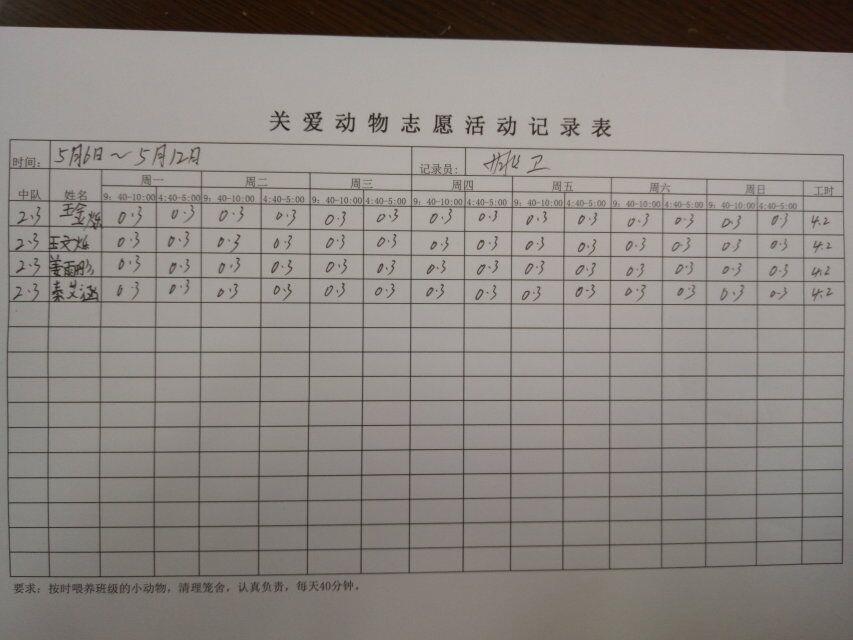 关爱动物志愿活动记录表
时间: 5月6日～5月12日 记录员: 卫
中队 姓名 周一 周二 周三 周四 周五 周六 周日 工时
9:40-10:00 4:40-5:00 9:40-10:00 4:40-5:00 9:40-10:00 4:40-5:00 9:40-10:00 4:40-5:00 9:40-10:00 4:40-5:00 9:40-10:00 4:40-5:00 9:40-10:00 4:40-5:00
2.3 王金烁 0.3 0.3 0.3 0.3 0.3 0.3 0.3 0.3 0.3 0.3 0.3 0.3 0.3 0.3 4.2
2.3 王文 0.3 0.3 0.3 0.3 0.3 0.3 0.3 0.3 0.3 0.3 0.3 0.3 0.3 0.3 4.2
2.3 姜雨彤 0.3 0.3 0.3 0.3 0.3 0.3 0.3 0.3 0.3 0.3 0.3 0.3 0.3 0.3 4.2
2.3 秦艾涵 0.3 0.3 0.3 0.3 0.3 0.3 0.3 0.3 0.3 0.3 0.3 0.3 0.3 0.3 4.2
要求：按时喂养班级的小动物，清理笼舍，认真负责，每天40分钟。